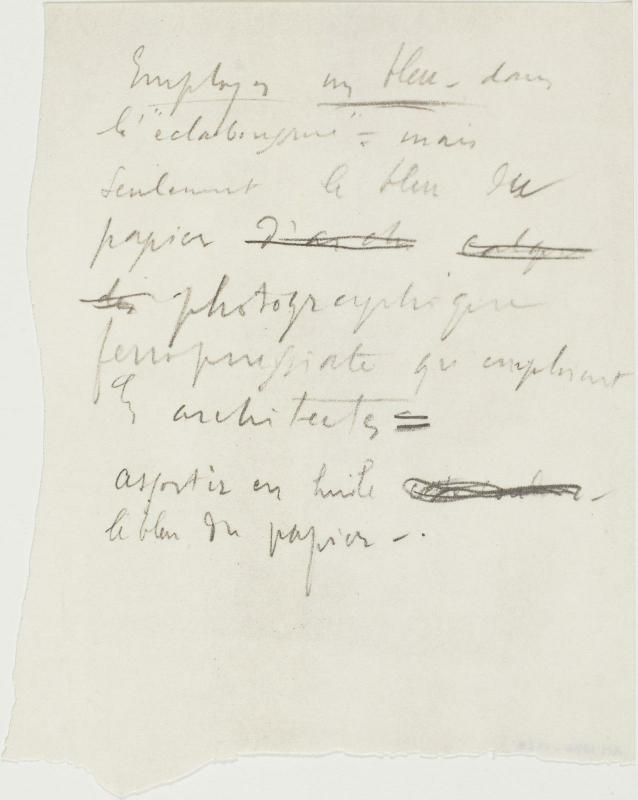 Employer un bleu - dans
l'"éclaboussure" = mais
seulement le bleu du
papier d'arch calque
des photographique
ferroprussiate qu'emploient
les architectes =
assortir en huile
le bleu du papier - .